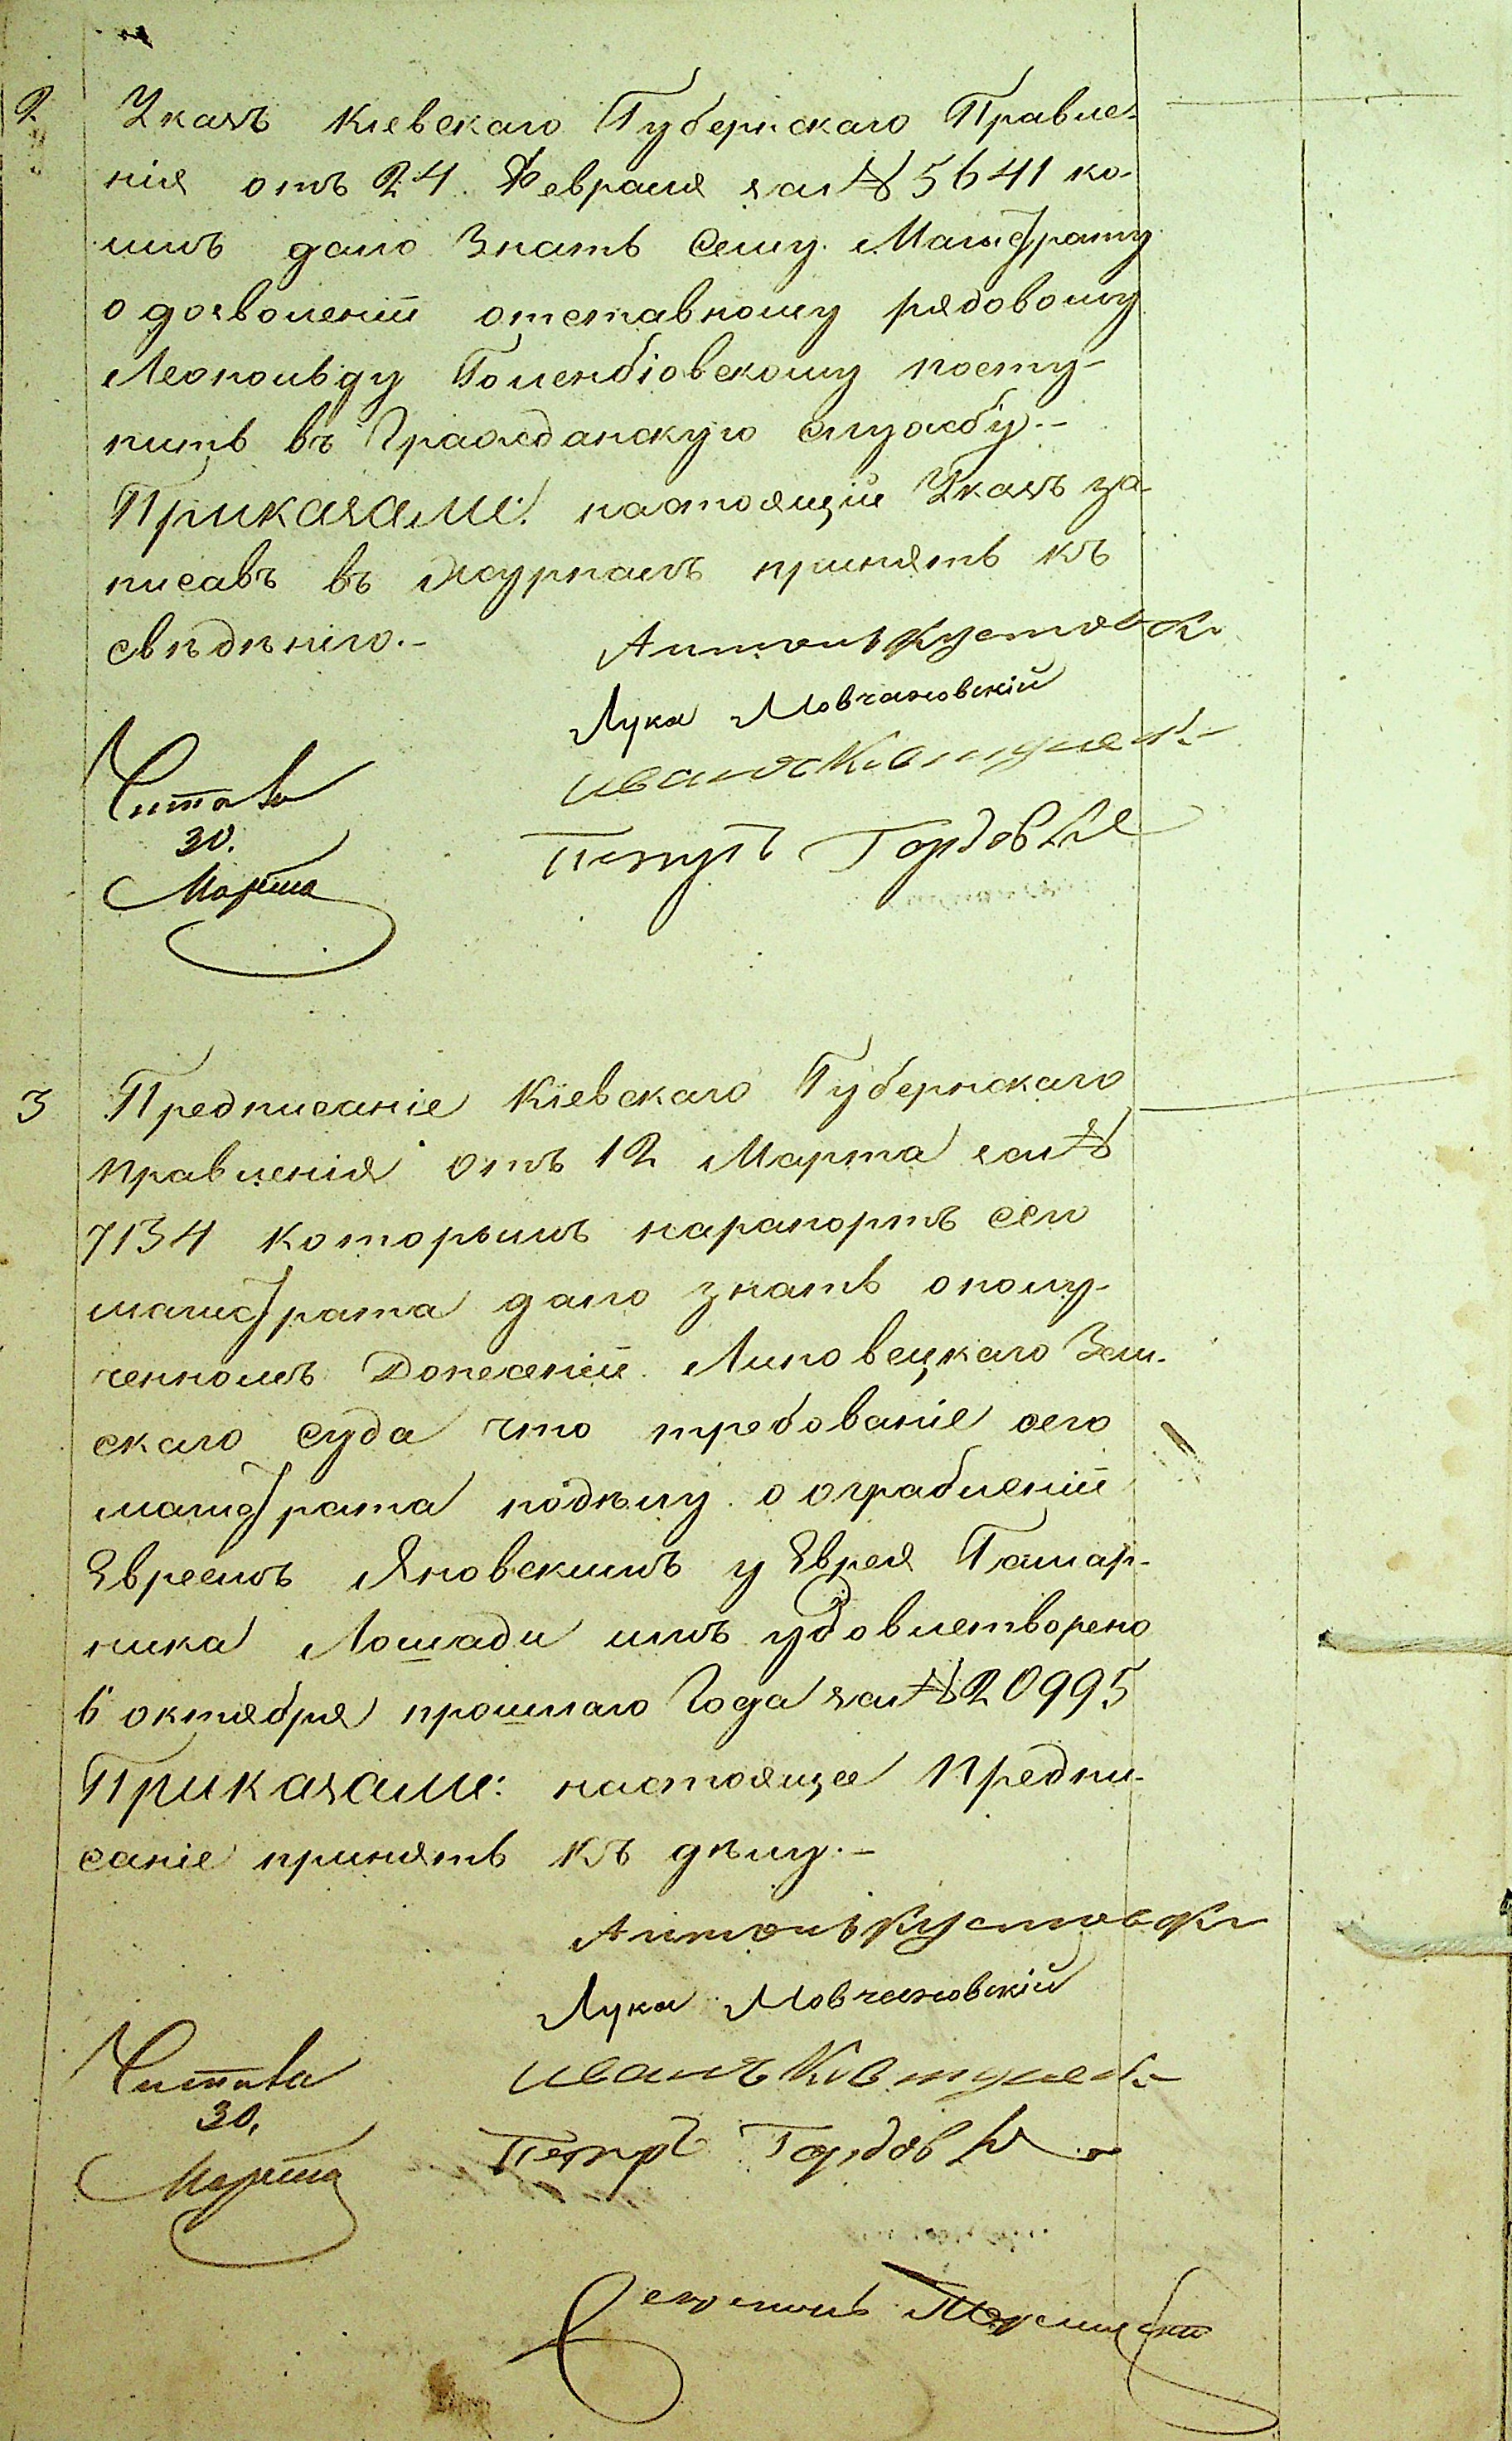 2. Указъ Кіевскаго Губернскаго Правле-
нія отъ 24 Февраля за № 5641 ко-
имъ дано знать сему Магистрату
о дозволеніи отставному рядовому
Леопольду Голембіовскому посту-
пить въ Гражданскую службу.-
Приказали: настоящій Указъ за-
писавъ въ журналъ принять къ
свѣдѣнію.-
Антонъ Кустовск
Лука Мовчановскій
Иванъ
Петръ
Читалъ
30.
Марта
3 Предписаніе Кіевскаго Губернскаго
Правленія отъ 12 Марта за №
7134 которымъ нарапортъ сего
магистрата дано знать ополу-
ченномъ Донесеніи Липовецкаго Зем-
скаго суда что требованіе сего
магистрата подѣлу о ограбленіи
Евреемъ Яновскимъ у Еврея Гамар-
ника Лошади имъ удовлетворено
6 октября прошлаго Года за № 20995
Приказали: настоящее Предпи-
саніе принять къ дѣлу.-
Антонъ Кустовск
Лука Мовчановскій
Иванъ
Петръ
Читала
30.
Марта
Секретарь